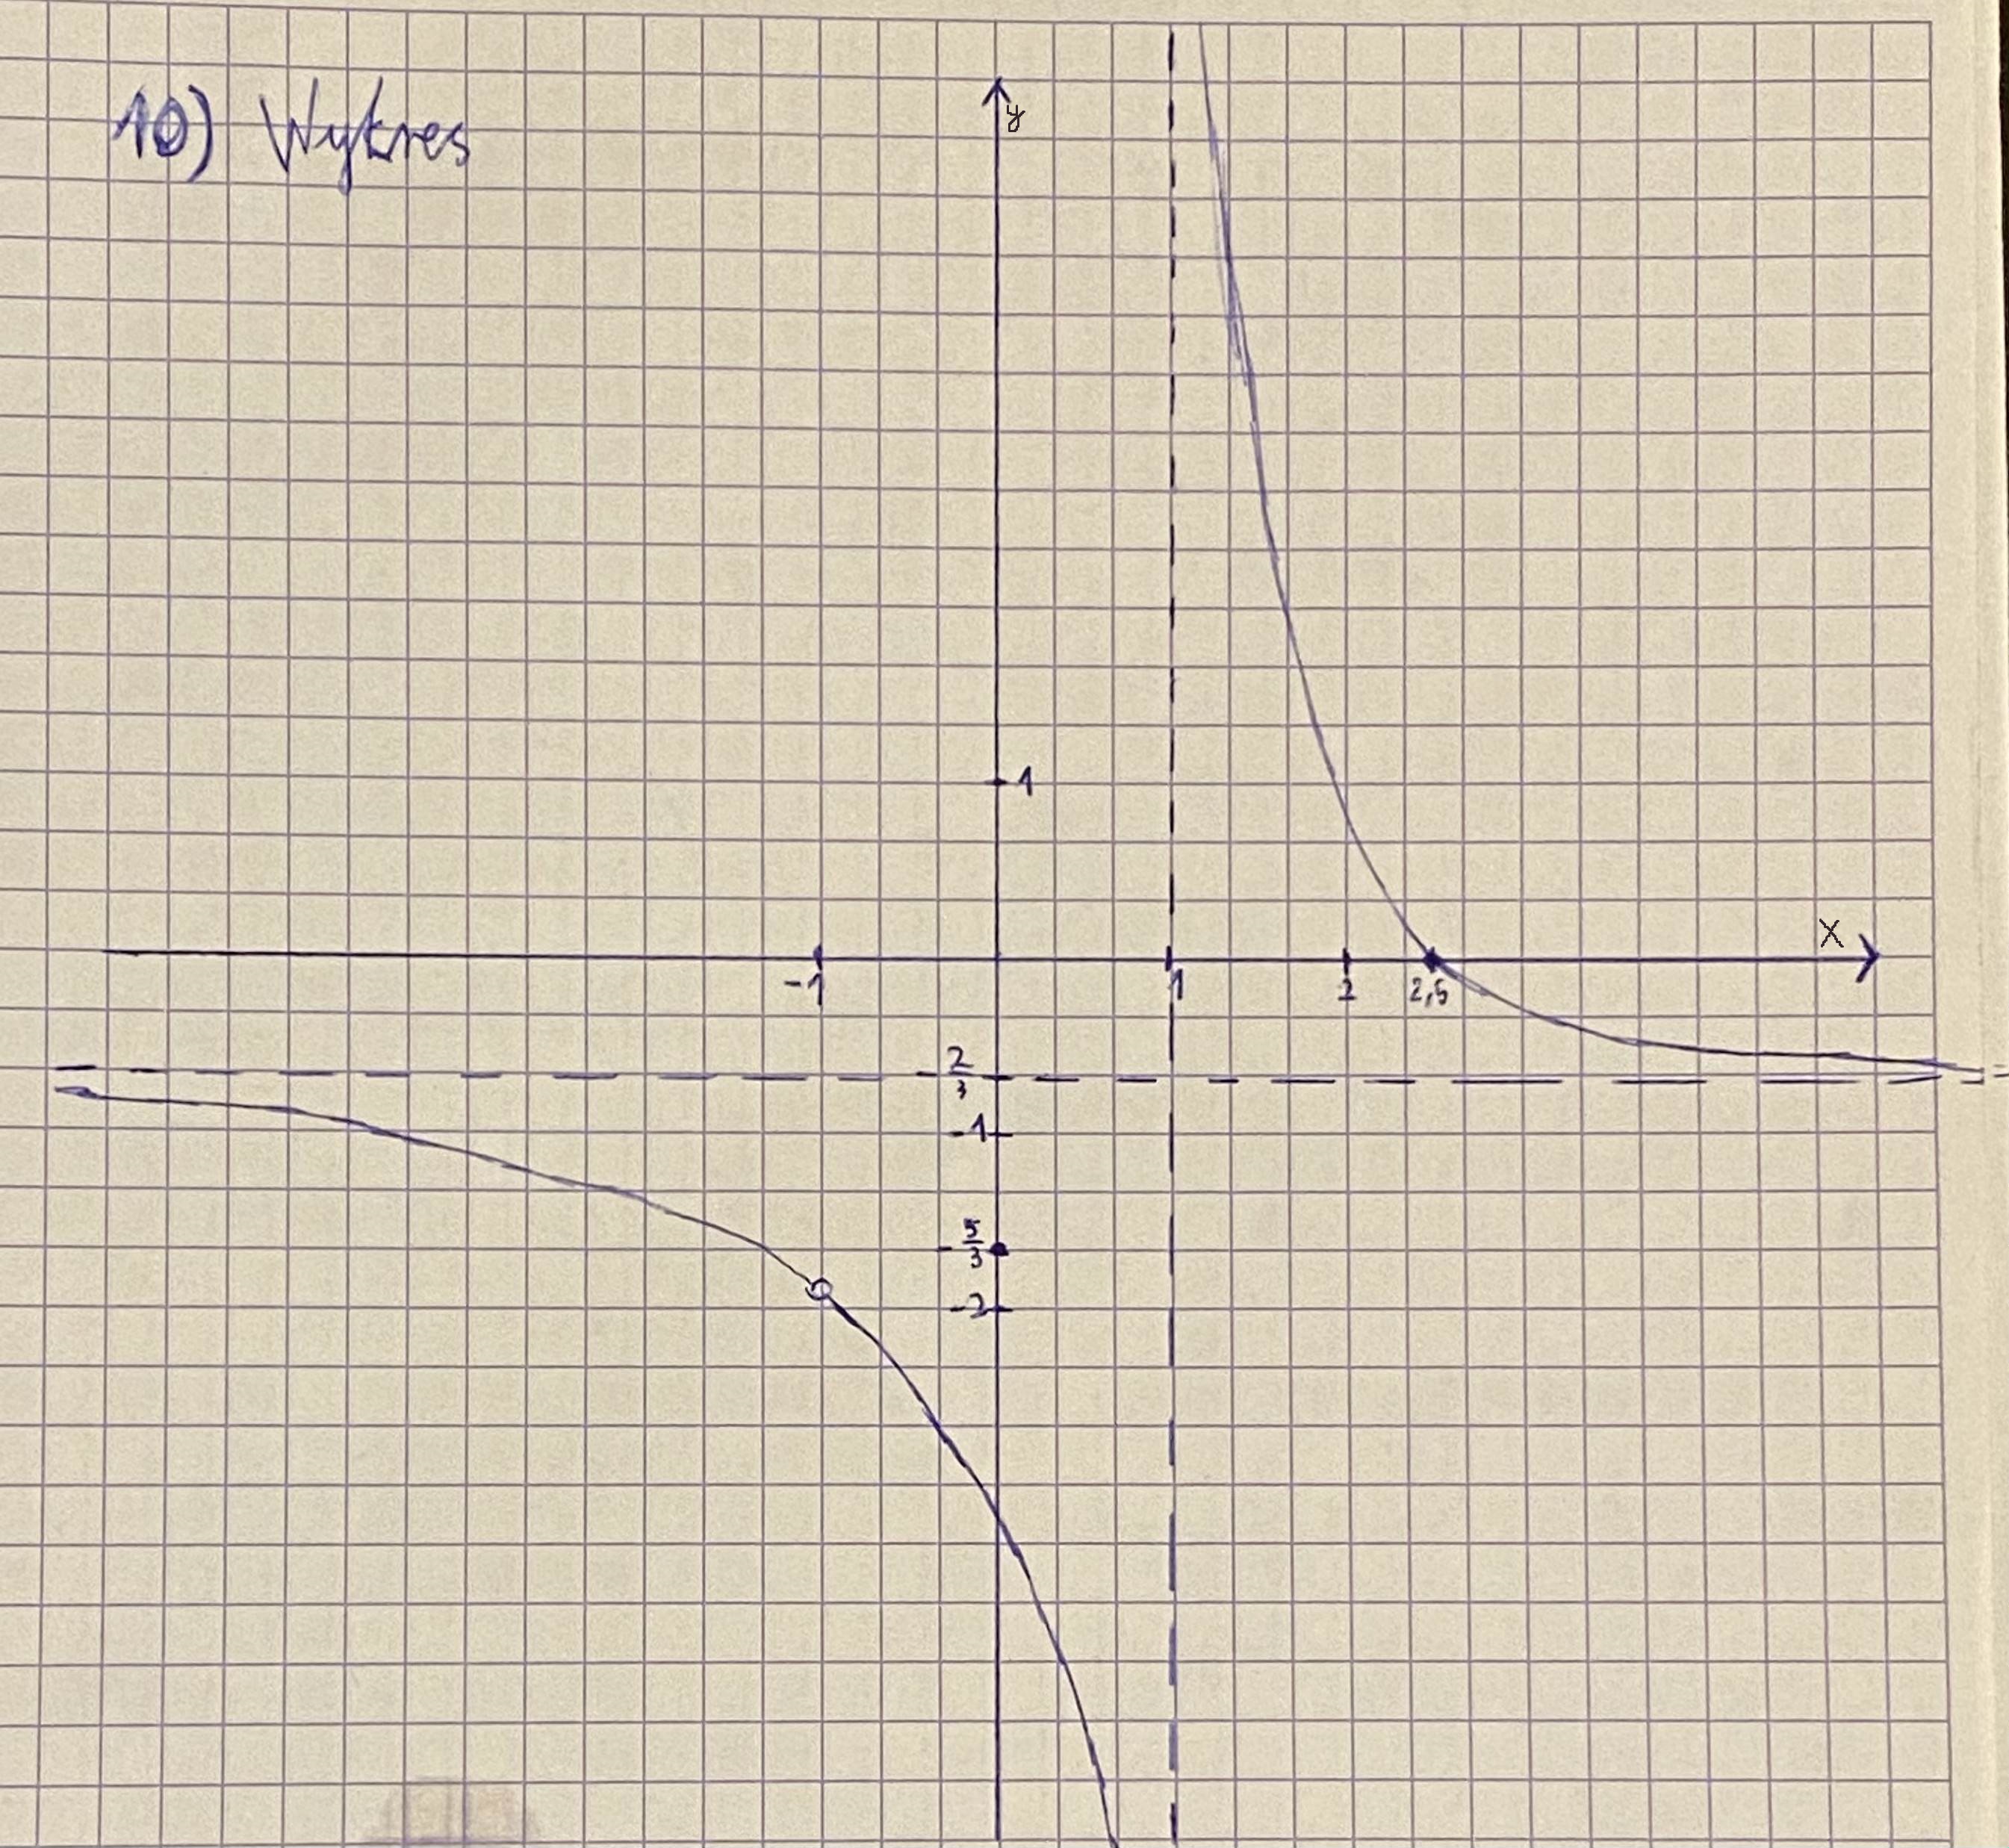 10) Wykres
y
1
x
-1
1
2
2,5
-2/3
-1
-5/3
-2